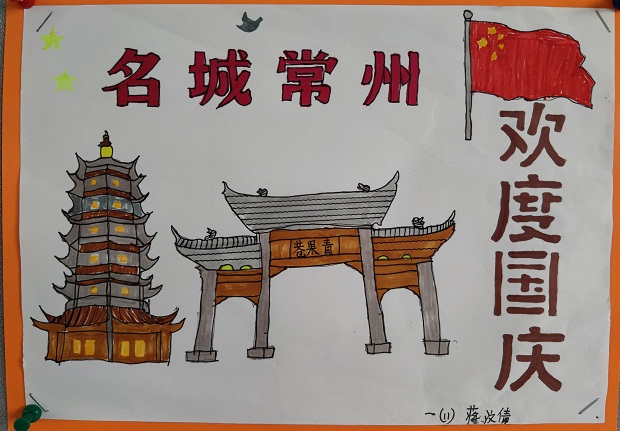 名城常州
欢度国庆
青果巷
一(11) 蒋汶倩